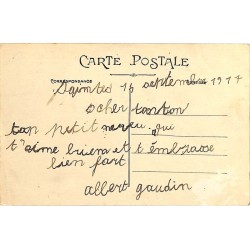 CARTE POSTALE
CORRESPONDANCE
Saintes 16 septembre 1917
ocher tonton
ton petit neveu qui
t'aime bien et t embrasse
bien fort
albert gaudin